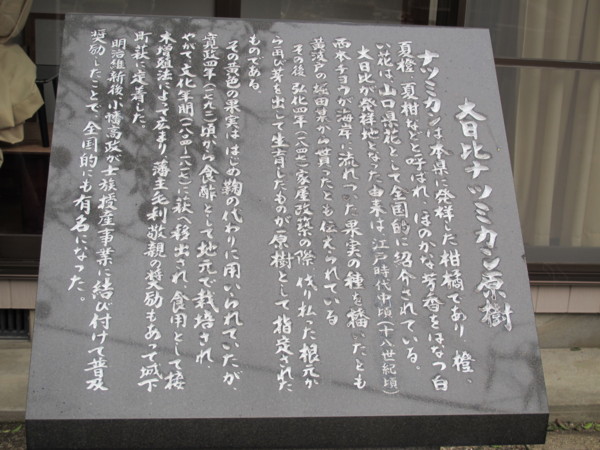 大日比ナツミカン原樹
ナツミカンは本県に発祥した柑橘であり、橙、
夏橙、夏柑などと呼ばれ、ほのかな芳香をはなつ白
い花は、山口県花として全国的に紹介されている。
大日比が発祥地となった由来は、江戸時代中頃(十八世紀頃)
西本チョウが海岸に流れついた果実の種を播いたとも
黄波戸の堀田某から貰ったとも伝えられている
その後弘化四年(一八四七)家屋改築の際、伐り払った根元か
ら再び芽を出して生育したものが原樹として指定された
ものである。
その黄色の果実は、はじめ鞠の代わりに用いられていたが、
寛政四年(一七九二)頃から食酢として地元で栽培され
やがて文化年間(一八〇四〜一八一七)に萩へ移出され、食用として接
木増殖法によって広まり、藩主毛利敬親の奨励もあって城下
町萩に定着した。
明治維新後、小幡高政が士族授産事業に結び付けて普及
奨励したことで、全国的にも有名になった。